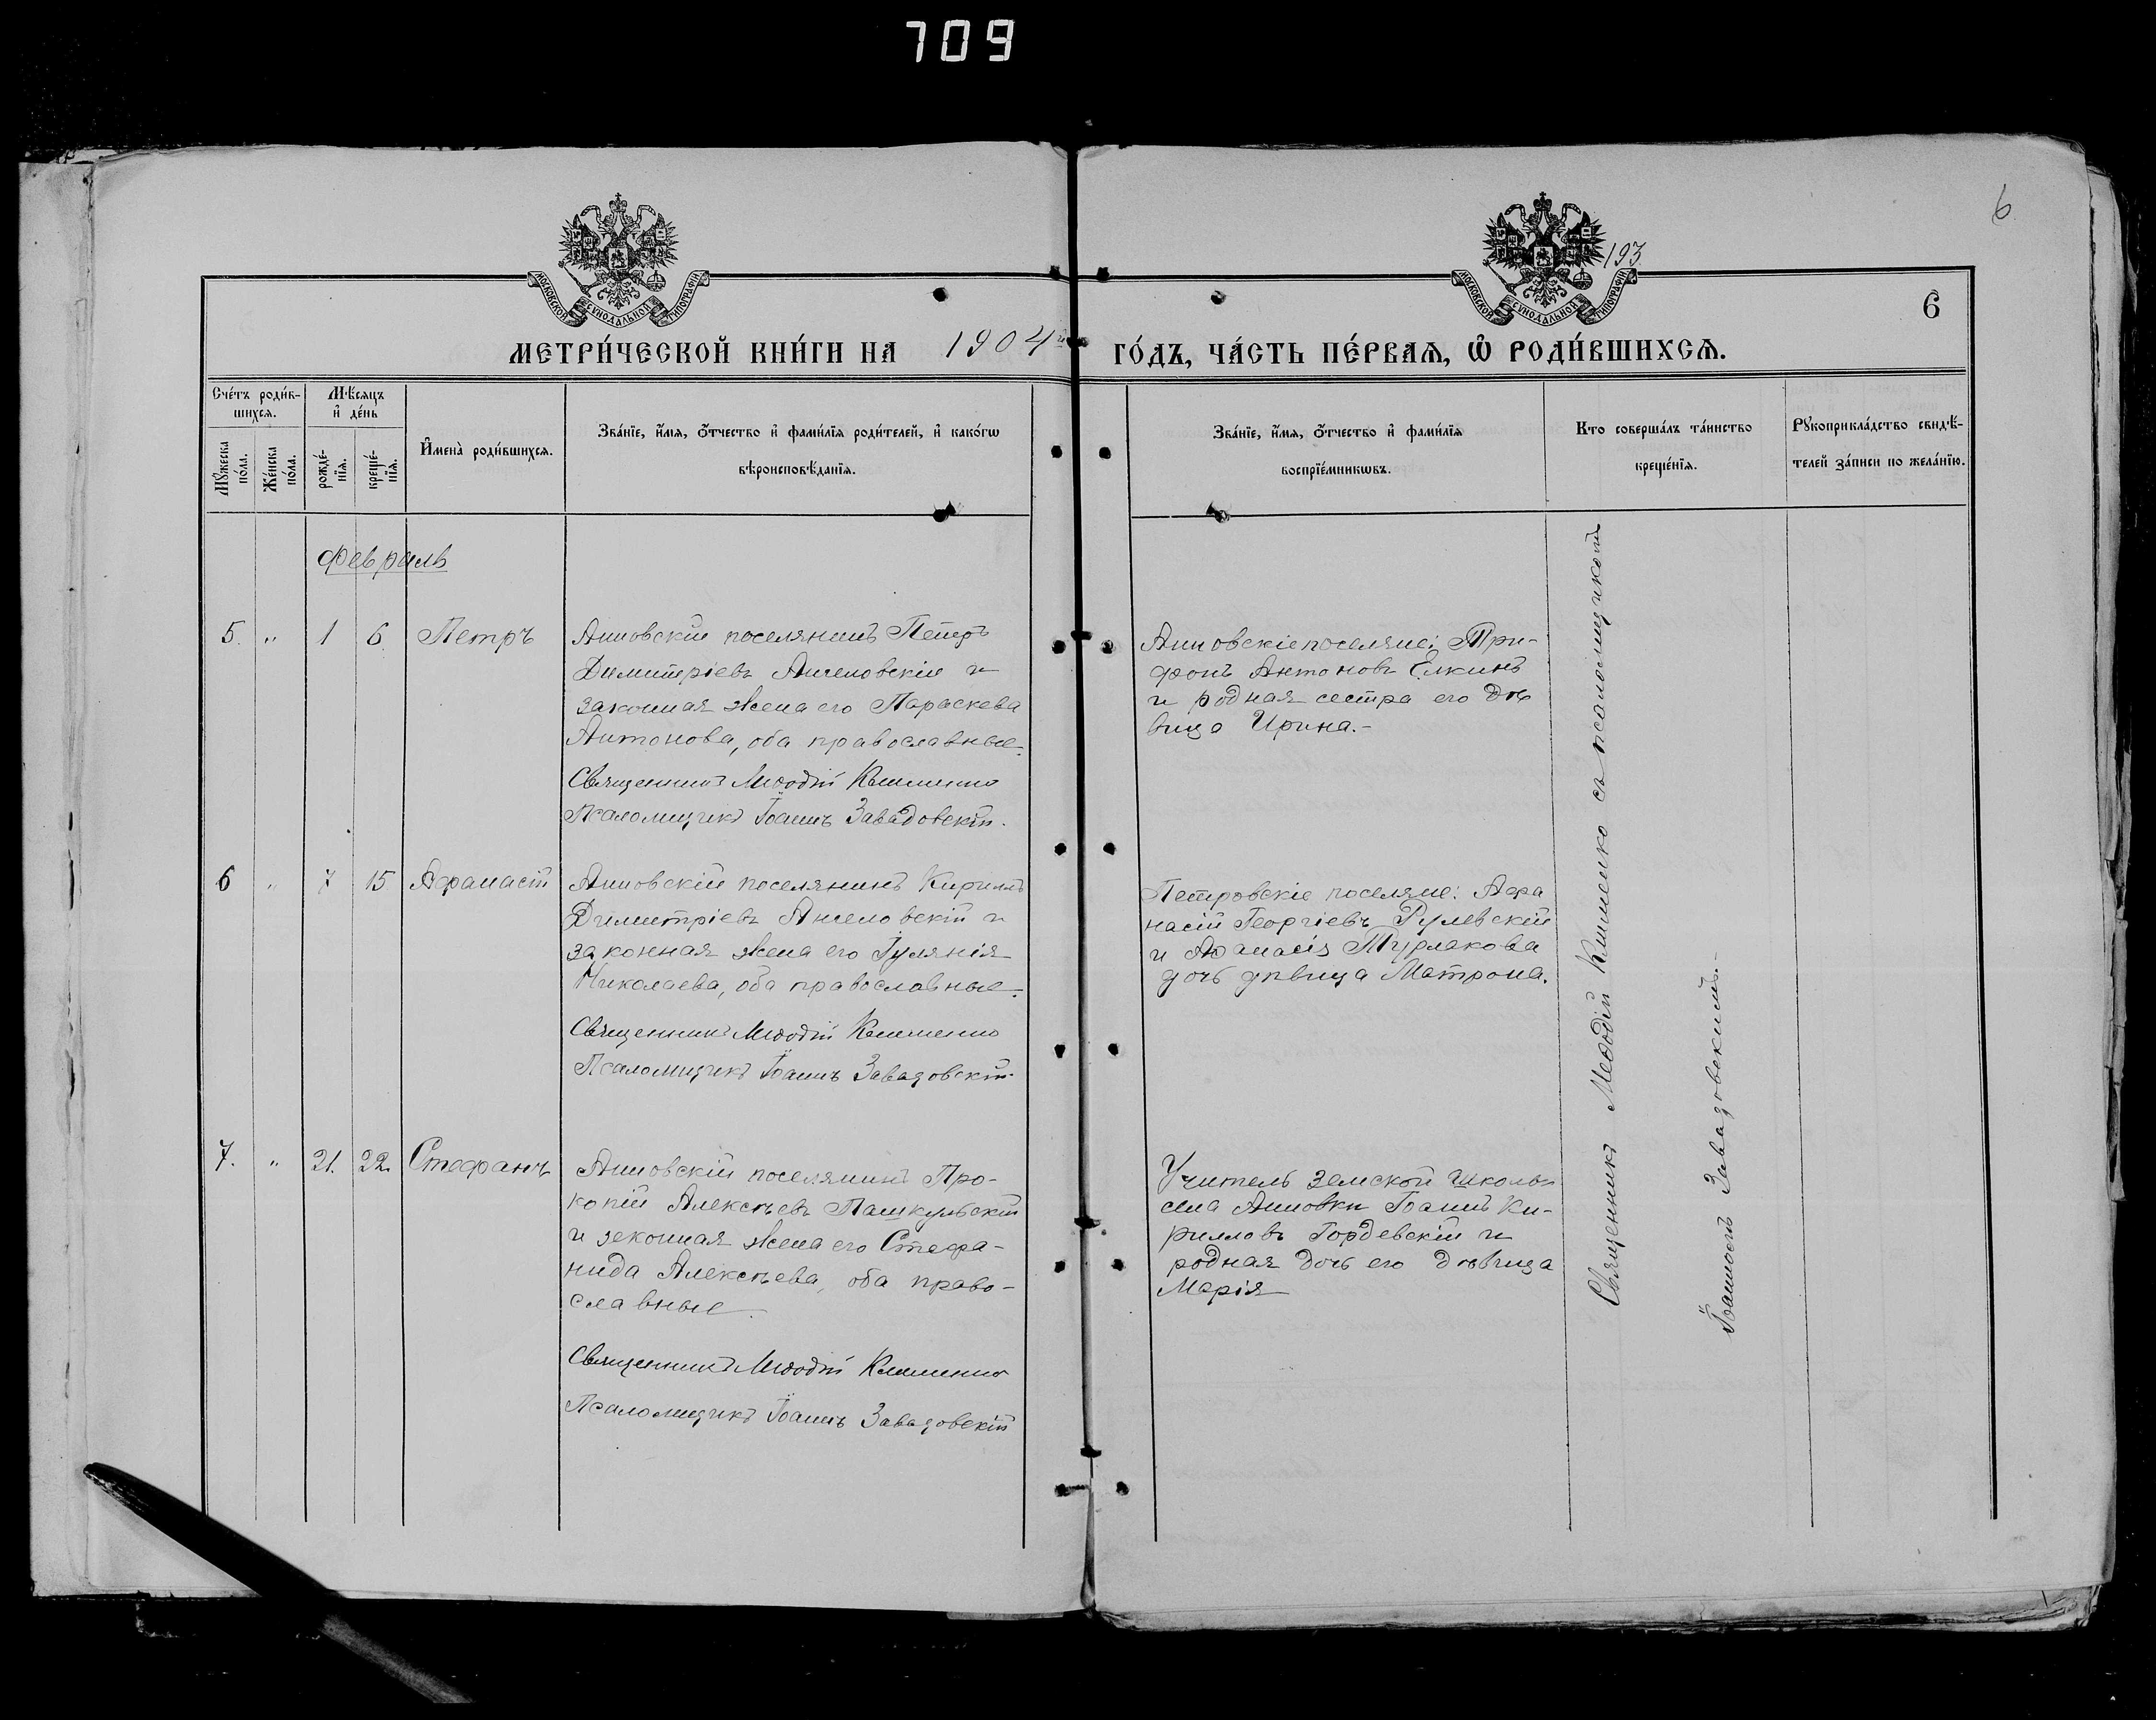 709
6
193.
МОСКОВСКОЙ СѴНОДАЛЬНОЙ ТИПОГРАФІИ
МОСКОВСКОЙ СѴНОДАЛЬНОЙ ТИПОГРАФІИ
6
МЕТРИ́ЧЕСКОЙ КНИ́ГИ НА 1904 ГО́ДЪ, ЧА́СТЬ ПЕ́РВАЯ, Ѽ РОДИ́ВШИХСЯ.
Сче́тъ роди́в-
шихся.
Мѣ́сяцъ
и҆ де́нь
Мꙋ́жеска
по́ла.
Же́нска
по́ла.
рожде́-
нїя.
креще́-
нїя.
И҆мена̀ роди́вшихся.
Зва́нїе, и҆́мя, ѻ҆́тчество и҆ фами́лїя роди́телей, и҆ како́гѡ
вѣроисповѣ́данїя.
Зва́нїе, и҆́мя, ѻ҆́тчество и҆ фами́лїя
воспрїе́мникѡвъ.
Кто соверша́лъ та́инство
креще́нїя.
Рꙋкоприкла́дство свидѣ́-
телей за́писи по жела́нїю.
Февраль
5. " 1 6. Петръ
Анновскій поселянинъ Петръ
Димитріевъ Ангеловскій и
законная жена его Параскева
Антонова, оба православные.
Священникъ Меѳодій Клименко
Псаломщикъ Іоаннъ Завадовскій.
Анновскіе поселяне: Три-
фонъ Антоновъ Елкинъ
и родная сестра его дѣ
вица Ирина.-
6 " 7 15 Афанасій
Анновскій поселянинъ Кириллъ
Димитріевъ Ангеловскій и
законная жена его Іулянія
Николаева, оба православные.
Священникъ Меѳодій Клименко
Псаломщикъ Іоаннъ Завадовскій.
Петровскіе поселяне: Афа
насій Георгіевъ Рулевскій
и Афанасія Турлакова
дочь дѣвица Матрона.
7. " 21. 22. Стефанъ
Анновскій поселянинъ Про-
копій Алексѣевъ Пашкульскій
и законная жена его Стефа-
нида Алексѣева, оба право-
славные.
Священникъ Меѳодій Клименко
Псаломщикъ Іоаннъ Завадовскій
Учитель земской школы
села Анновки Іоаннъ Ки-
рилловъ Гордевскій и
родная дочь его дѣвица
Марія
Священникъ Меѳодій Клименко съ псаломщикомъ
Іоанномъ Завадовскимъ.-